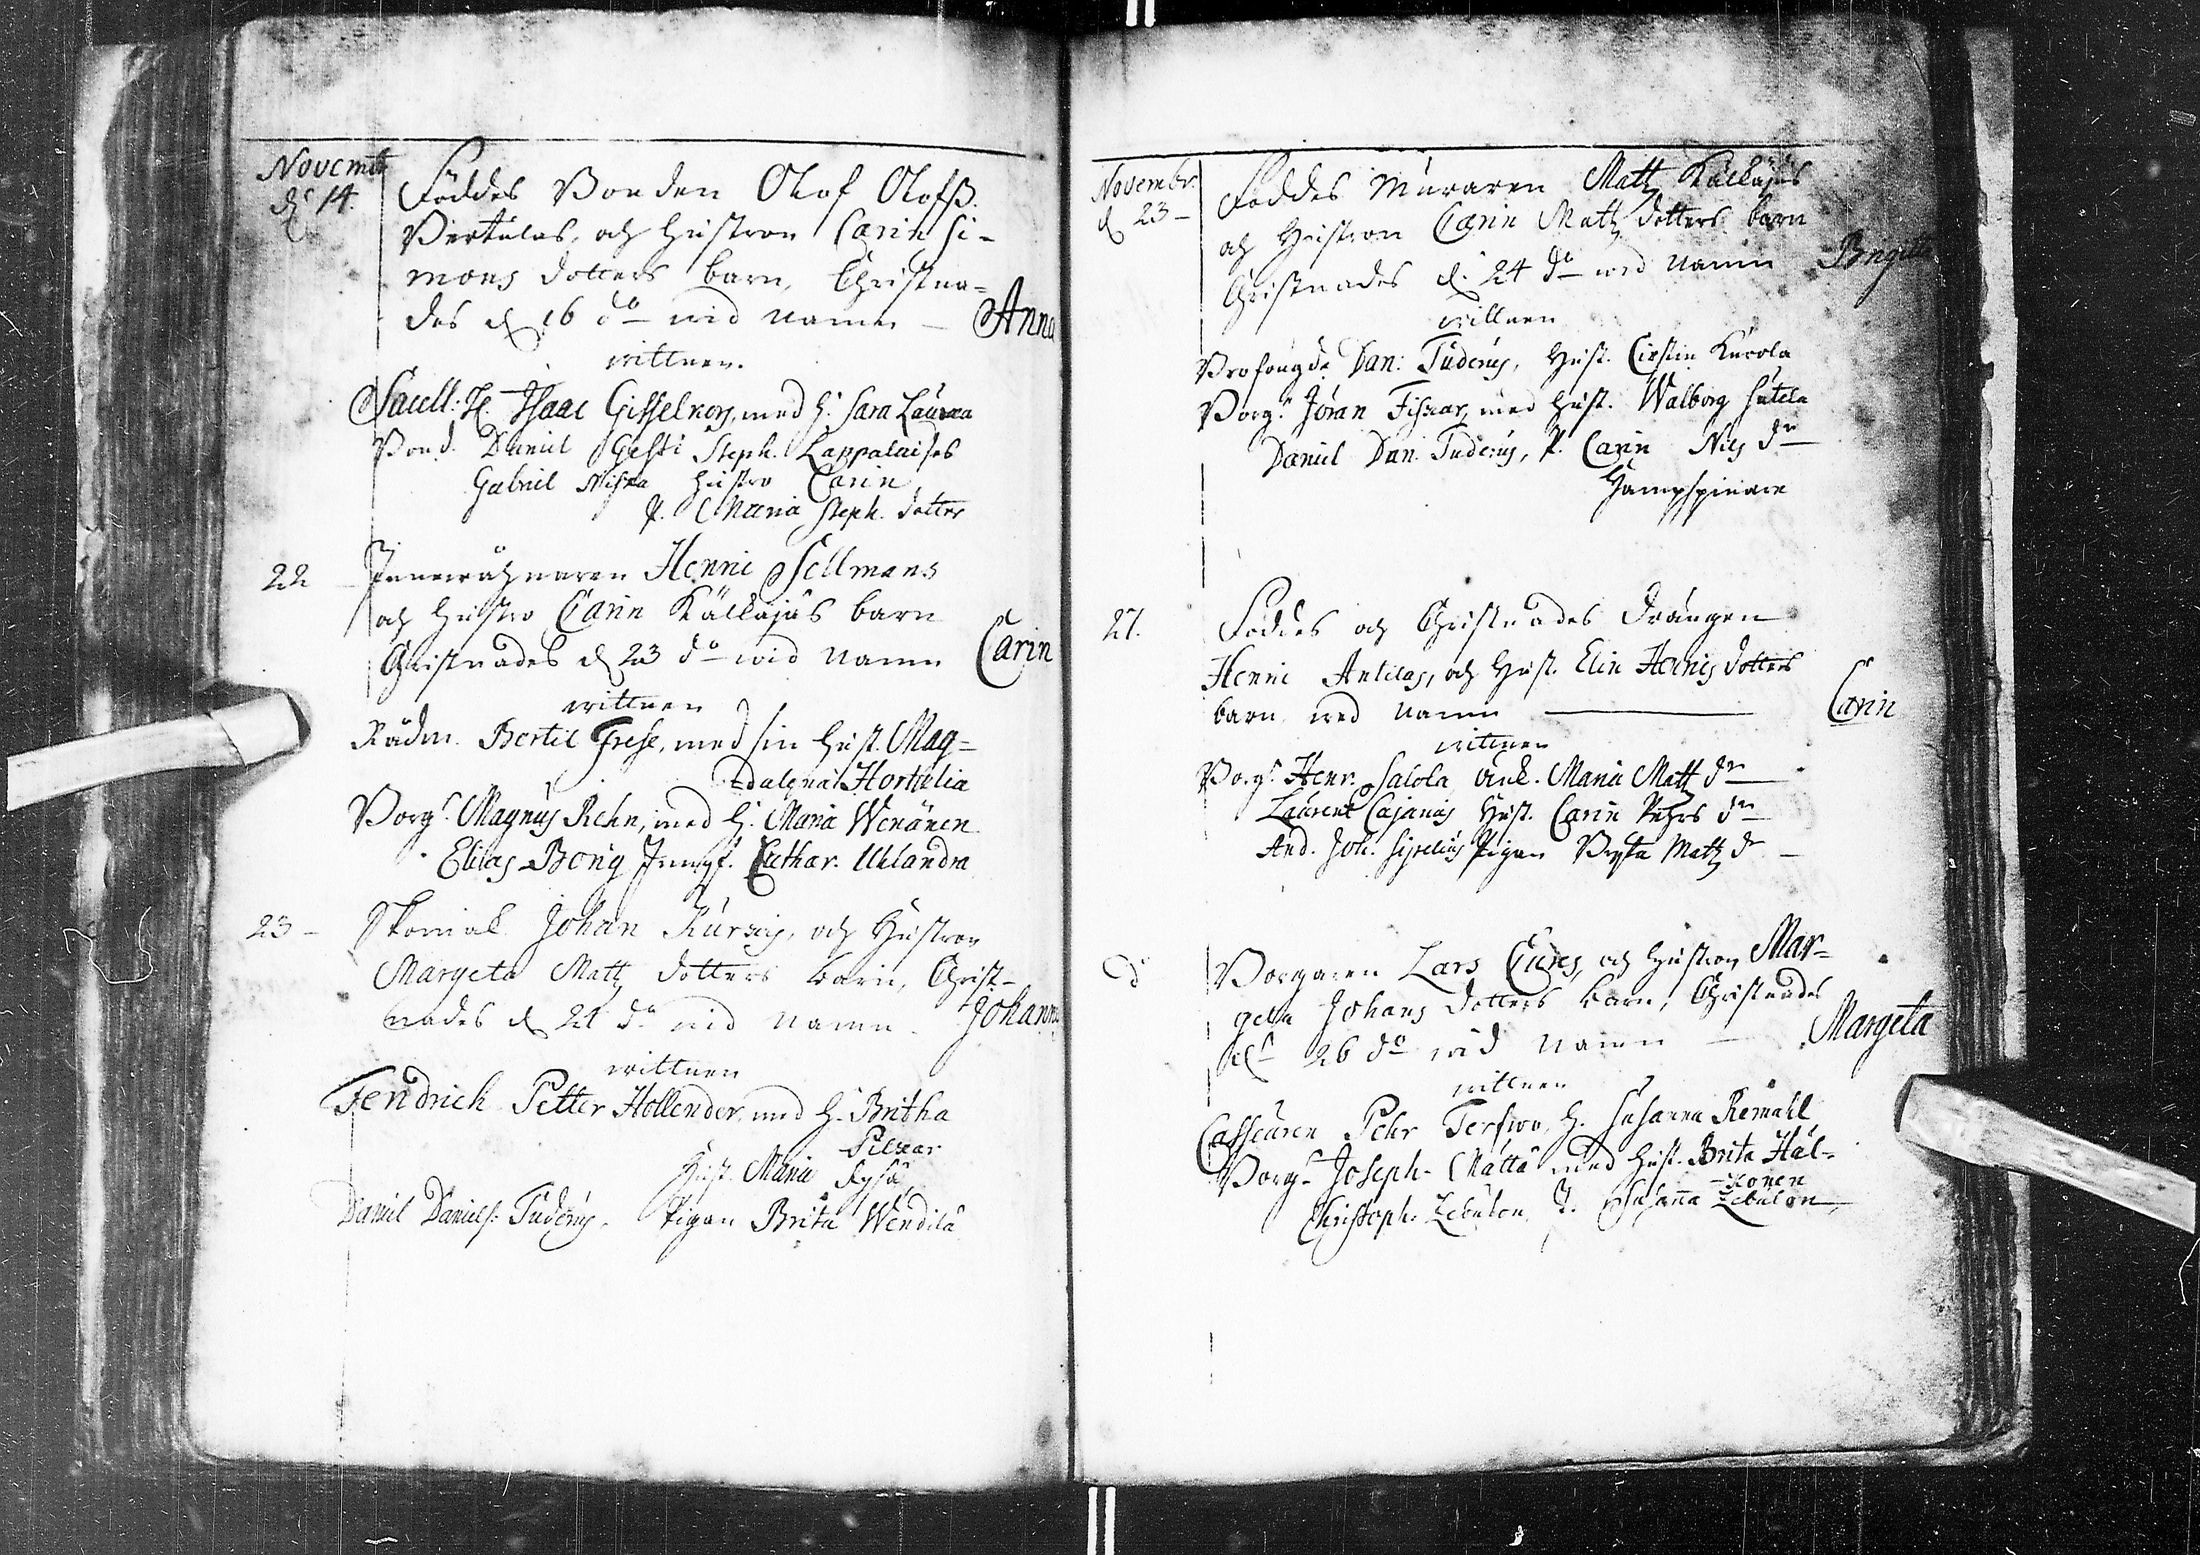 Novembr
d. 14.
Föddes Bonden Olof Olofß.
Pertulas, och Hustron Carin Si-
mons dotters barn, Christna-
des d. 16 do wid namn – Anna
wittnen.
Sacell: H. Isaac Gisselkors, med H. Sara Laurœa
Bond. Daniel Steph. Lappalaises
Gabriel Hustro Carin
P. Maria Steph. dotter
22 Henric Sellmans
och Hustro Carin Källajäs barn
Christnades d. 23 do wid namn Carin
wittnen
Rådm. Bertil Frese, med sin Hust. Mag-
dalena Hortulia
Borg.r Magnus Rehn, med H. Maria Wenänen
Elias Bong Jungf. Cathar. Uhlandra
23 – Skomak. Johan och Hustron
Margeta Mattz dotters barn, Christ-
nades d. 24 do wid namn. Johannes
wittnen
Fendrick Petter Hollender med H. Britha
Pilxar
Hust. Maria
Daniel Daniels: Tuderus, Pigan Brita Wendilä
Novembr.
d. 23 –
Föddes Muraren Mattz Källajäs
och Hustron Carin Mattz dotters barn
Christnades d. 24 do wid namn Brigita
wittnen
Profougde Dan: Tuderus, Hust. Cirstin Kurola
Borg.r Jöran Fiskar, med Hust. Walborg Sutela
Daniel Dan. Tuderus, P. Carin Nils dr
Hampspinare
27. Föddes och Christnades Drängen
Henric Antilas, och Hust. Elin Henrics dotters
barn med namn — Carin
wittnen
Borg.r Henr. Salola Änk. Maria Mattz dr
Laurent Cajanus Hust. Carin Pehrs dr
And. Joh. Sipelius Pigan Mattz dr –
do
Borgaren Lars och Hustron Mar-
geta Johans dotters barn, Christnades
d. 26 do wid namn — Margeta
wittnen
Casseuren Pehr Terswo, H. Susanna Remahl
Borg.r Joseph Mattä med Hust. Brita Häl-
-konen
Christoph. Zebulon, P. Susanna Zebulon